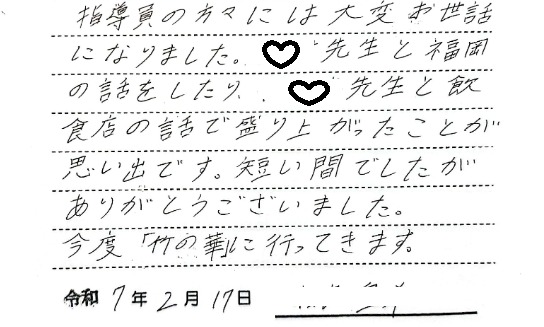 指導員の方々には大変お世話
になりました。♡先生と福岡
の話をしたり、♡先生と飲
食店の話で盛り上がったことが
思い出です。短い間でしたが
ありがとうございました。
今度「竹の華」に行ってきます。
令和 7年 2月 17日